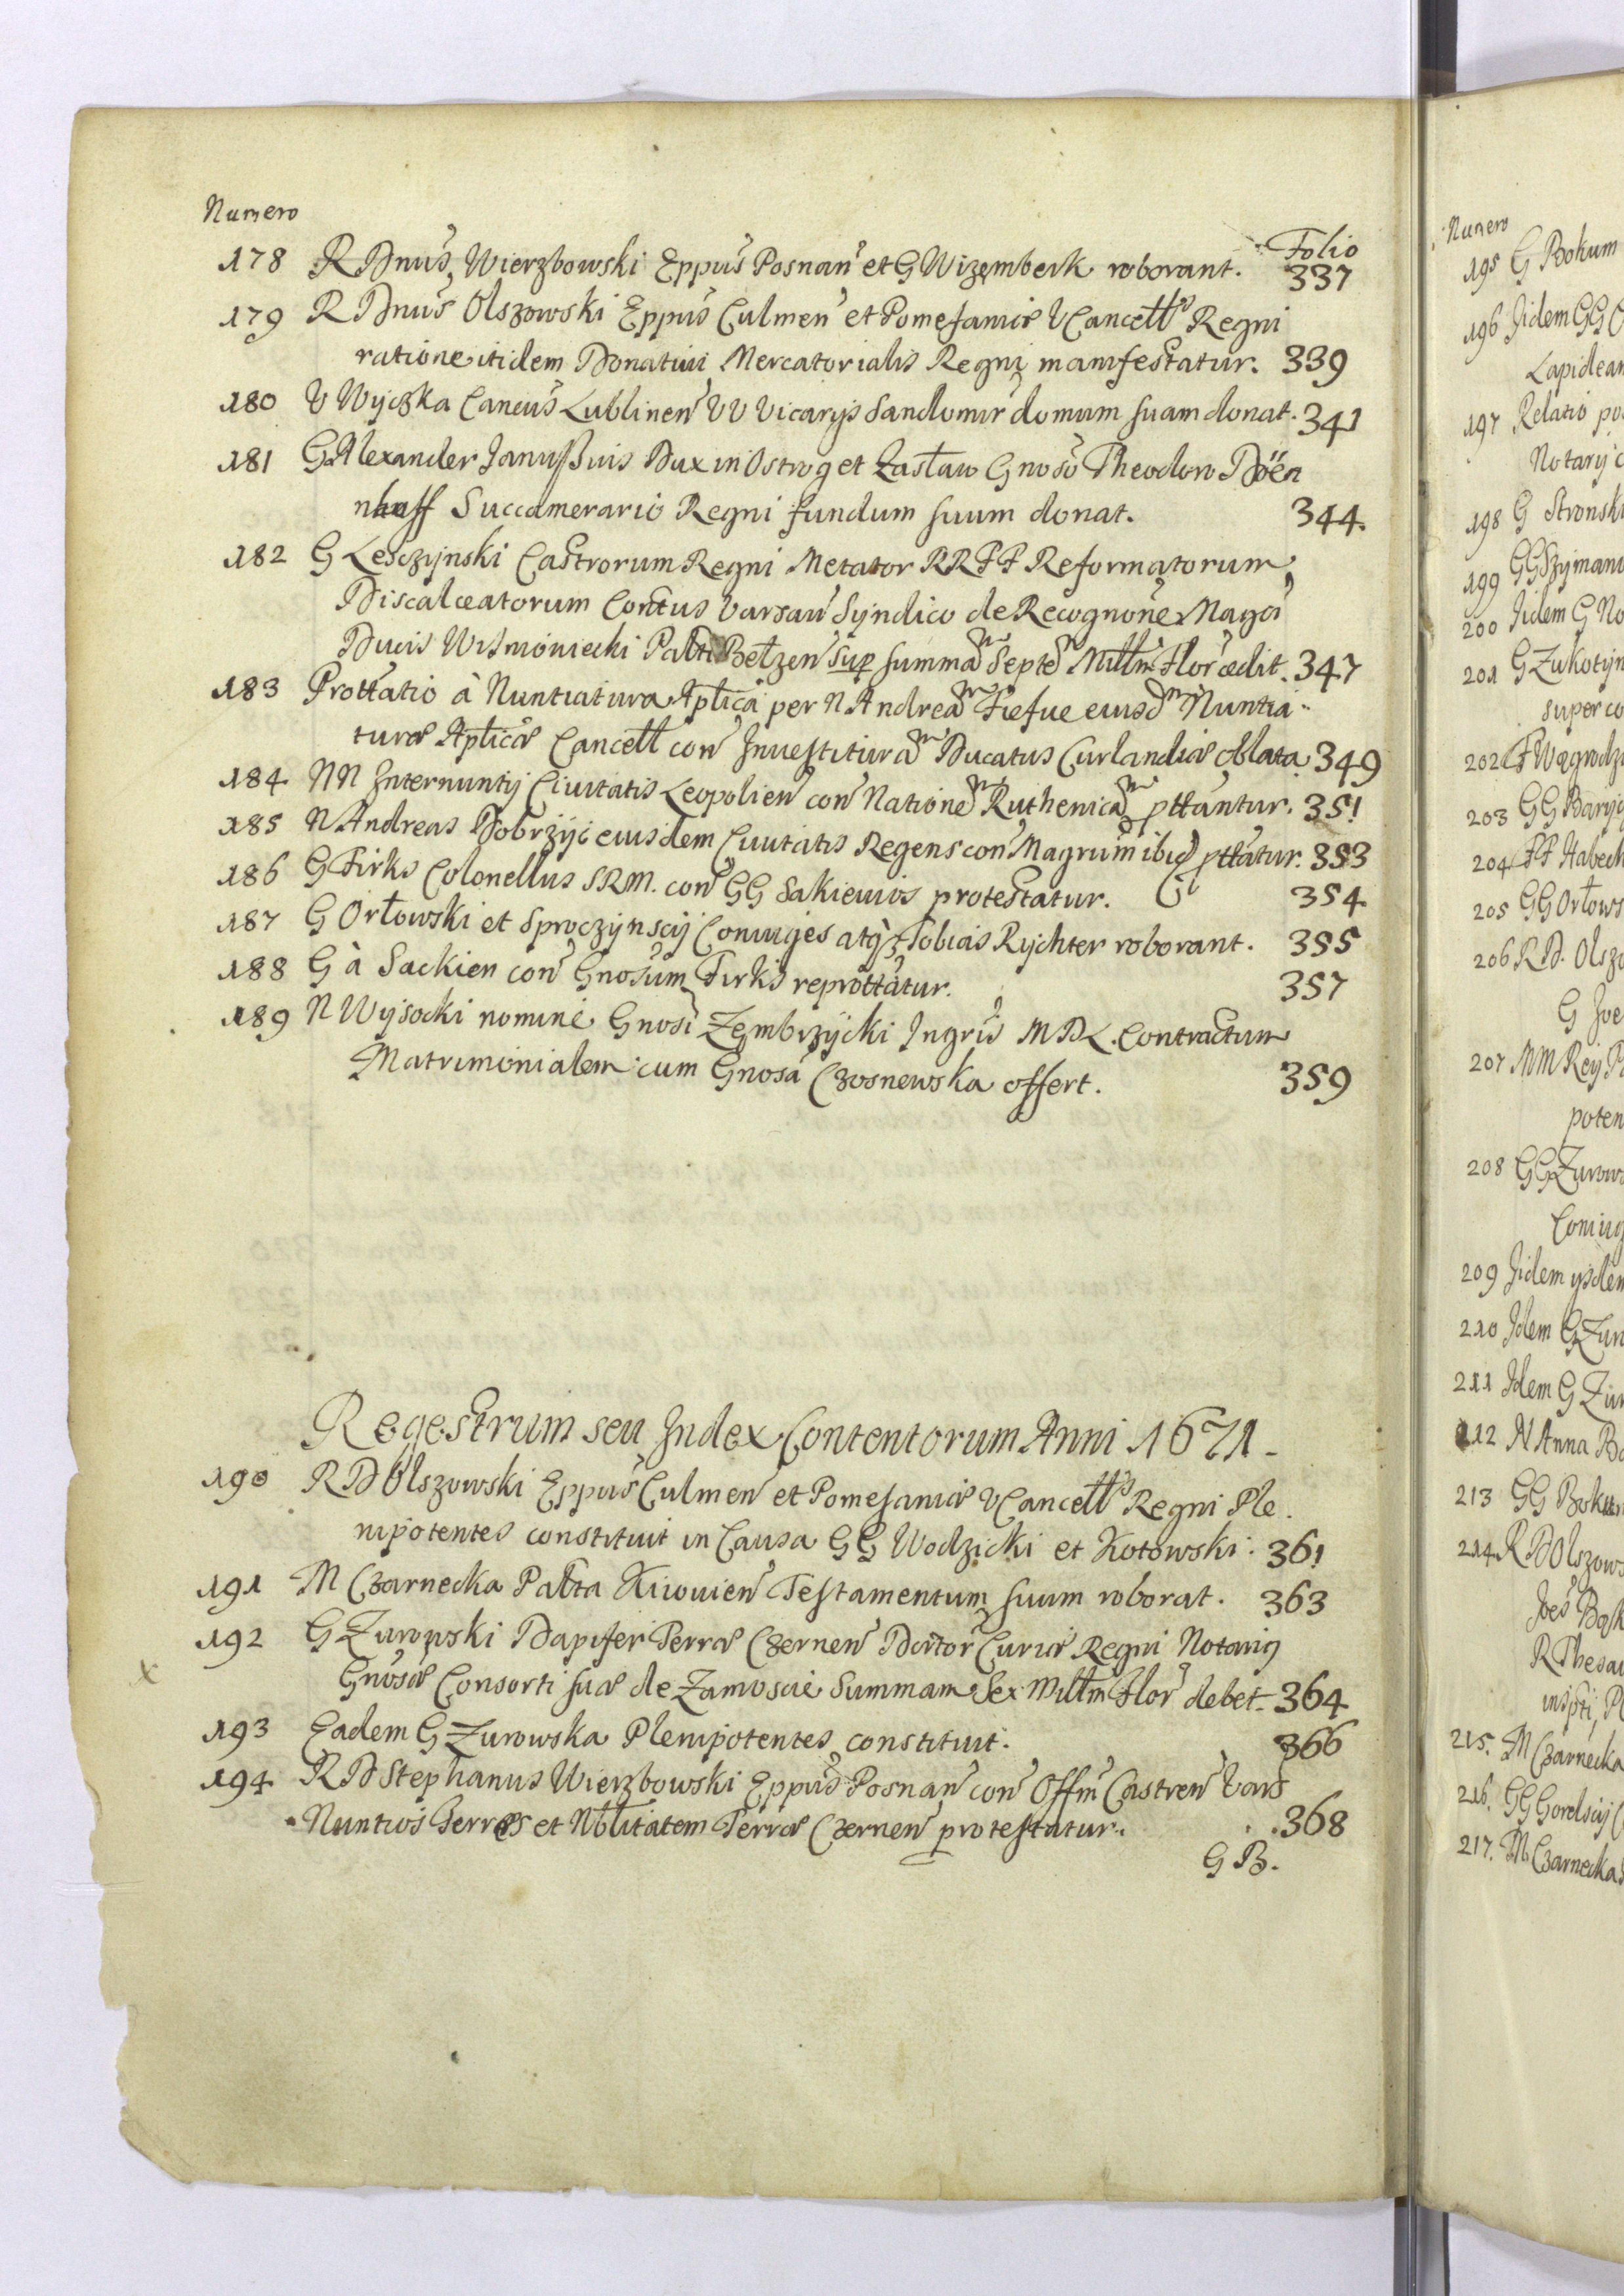 Numero
Folio
178 R Dnus Wierzbowski Eppus Posnan et G Wizemberk roborant. 337
179 R Dnus Olszowski Eppus Culmen et Pomesaniæ VCancell Regni
ratione itidem Donativi Mercatorialis Regni manifestatur. 339
180 V Wyczka Cancus Lublinen VV Vicarijs Sandomir domum suam donat. 341
181 G Alexander Janussius Dux in Ostrog et Zasław Gnoso Theodoro Döen
nhoff Succamerario Regni fundum suum donat. 344.
182 G Lesczynski Castrorum Regni Metator RRFF Reformatorum
Discalceatorum Contus Varsau Syndico de Recognone Magci
Ducis Wisnioniecki Palti Betzen sup summa Septe Millm Flor cedit. 347
183 Prottatio à Nuntiatura Aplica per N Andrea Fiefue eiusd Nuntia-
turæ Aplicæ Cancell con Investitura Ducatus Curlandiæ oblata 349
184 NN Internuntij Civitatis Leopolien con Natione Ruthenica pttantur. 351
185 N Andreas Dobrzyc eiusdem Civitatis Regens con Magrum ibid pttatur. 353
186 G Firks Colonellus SRM. con GG Sakienios protestatur. 354
187 G Orłowski et Sproczynscij Coniuges atq Tobias Rychter roborant. 355
188 G à Sackien con Gnosum Firks reprottatur. 357
189 N Wysocki nomine Gnosi Zembrzycki Ingris MDL. Contractum
Matrimonialem cum Gnosa Czosnewska offert. 359
Regestrum seu Index Contentorum Anni 1671.
190 R D Olszowski Eppus Culmen et Pomesaniæ VCancell Regni Ple
nipotentes constituit in Causa GG Wodzicki et Kotowski. 361
191 M Czarnecka Paltta Kiiouien Testamentum suum roborat. 363
192 G Zurowski Dapifer Terræ Czernen Dector Curiæ Regni Notarig
Gnosæ Consorti suæ de Zamoscie Summam Sex Millm Flor debet 364
193 Eadem G Zurowska Plenipotentes constituit. 366
194 R D Stephanus Wierzbowski Eppus Posnan con Offm Castren Vars
Nuntios Terres et Nbltitatem Terræ Czernen protestatur. 368
G B.
Numero
195 G Bokum
196 Jidem GG
Lapidean
197 Relatio po
Notarij
198 G Stronski
199 GG Szymano
200 Jidem G No
201 G Zukotyn
super co
202 F Wągrodz
203 GG Baryc
204 FF Habeck
205 GG Orłows
206 R D. Olszo
G Joe
207 MM Rey P
poten
208 GG Zurows
Coniug
209 Jidem ysdem
210 Idem G Zur
211 Idem G Zur
212 N Anna Bo
213 GG Bokum
214 R D Olszows
Joes Bo
R Thesau
inspti, Pl
215. M Czarnecka
216. GG Gorelscij
217. M Czarnecka